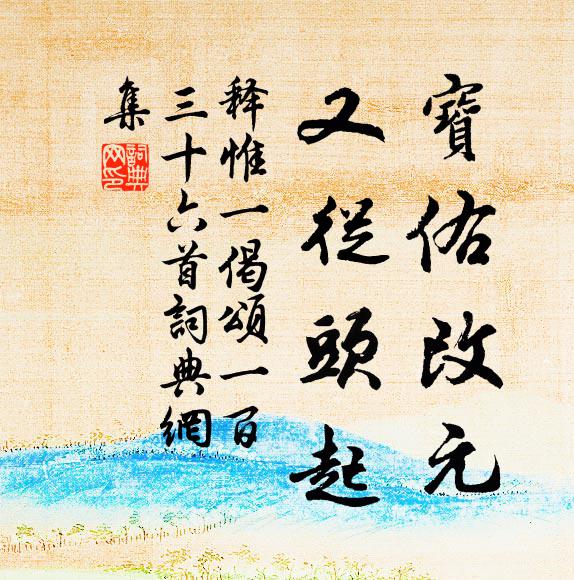 寶佑改元
又從頭起
释惟一偈頌一百
三十六首詞典網
集
詞典
网印